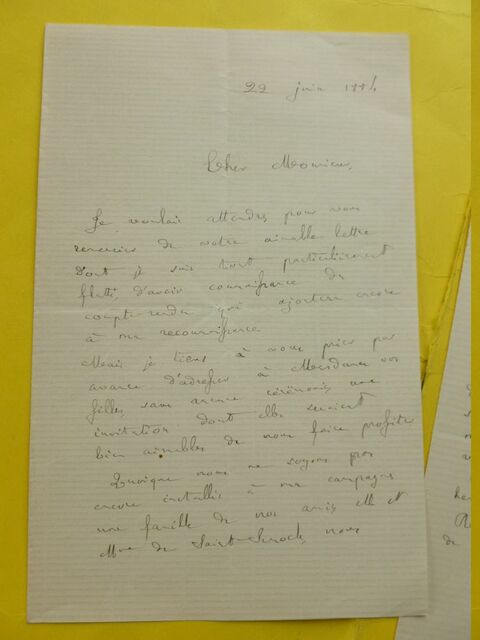 22 juin 188
Cher Monsieur,
Je voulais attendre, pour vous
remercier de votre aimable lettre
dont je suis tout particulièrement
flatté, d'avoir connaissance du
compte-rendu qui ajoutera encore
à ma reconnaissance.
Mais je tiens à vous prier par
avance d'adresser à Mesdames vos
filles, sans aucune cérémonie, une
invitation dont elles seraient
bien aimables de nous faire profiter
Quoique nous ne soyons pas
encore installés à ma campagne
une famille de nos amis M et
Mme de Saint- nous
de